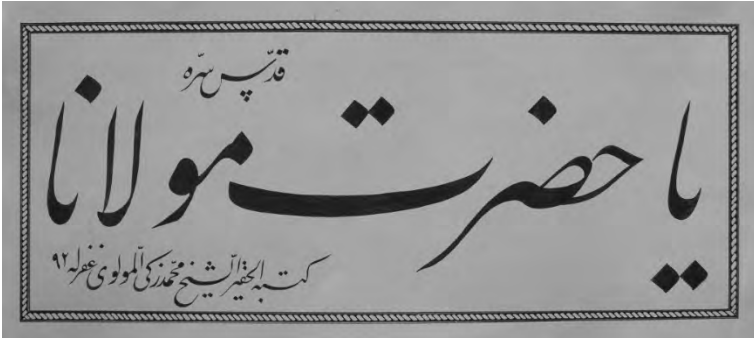 قدّس سرّه
يا حضرت مولانا
كتبه الحقير الشيخ محمد زكى المولوى غفرله ٩٢